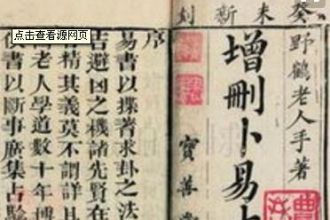 点击查看源网页
癸未新
野鶴老人手著
增刪卜易
寶善
序
易書以揲蓍求卦之法
吉避凶之機諸先賢在
精其義莫不謂詳且
老人學道數十年博
書以斷事廣集占驗